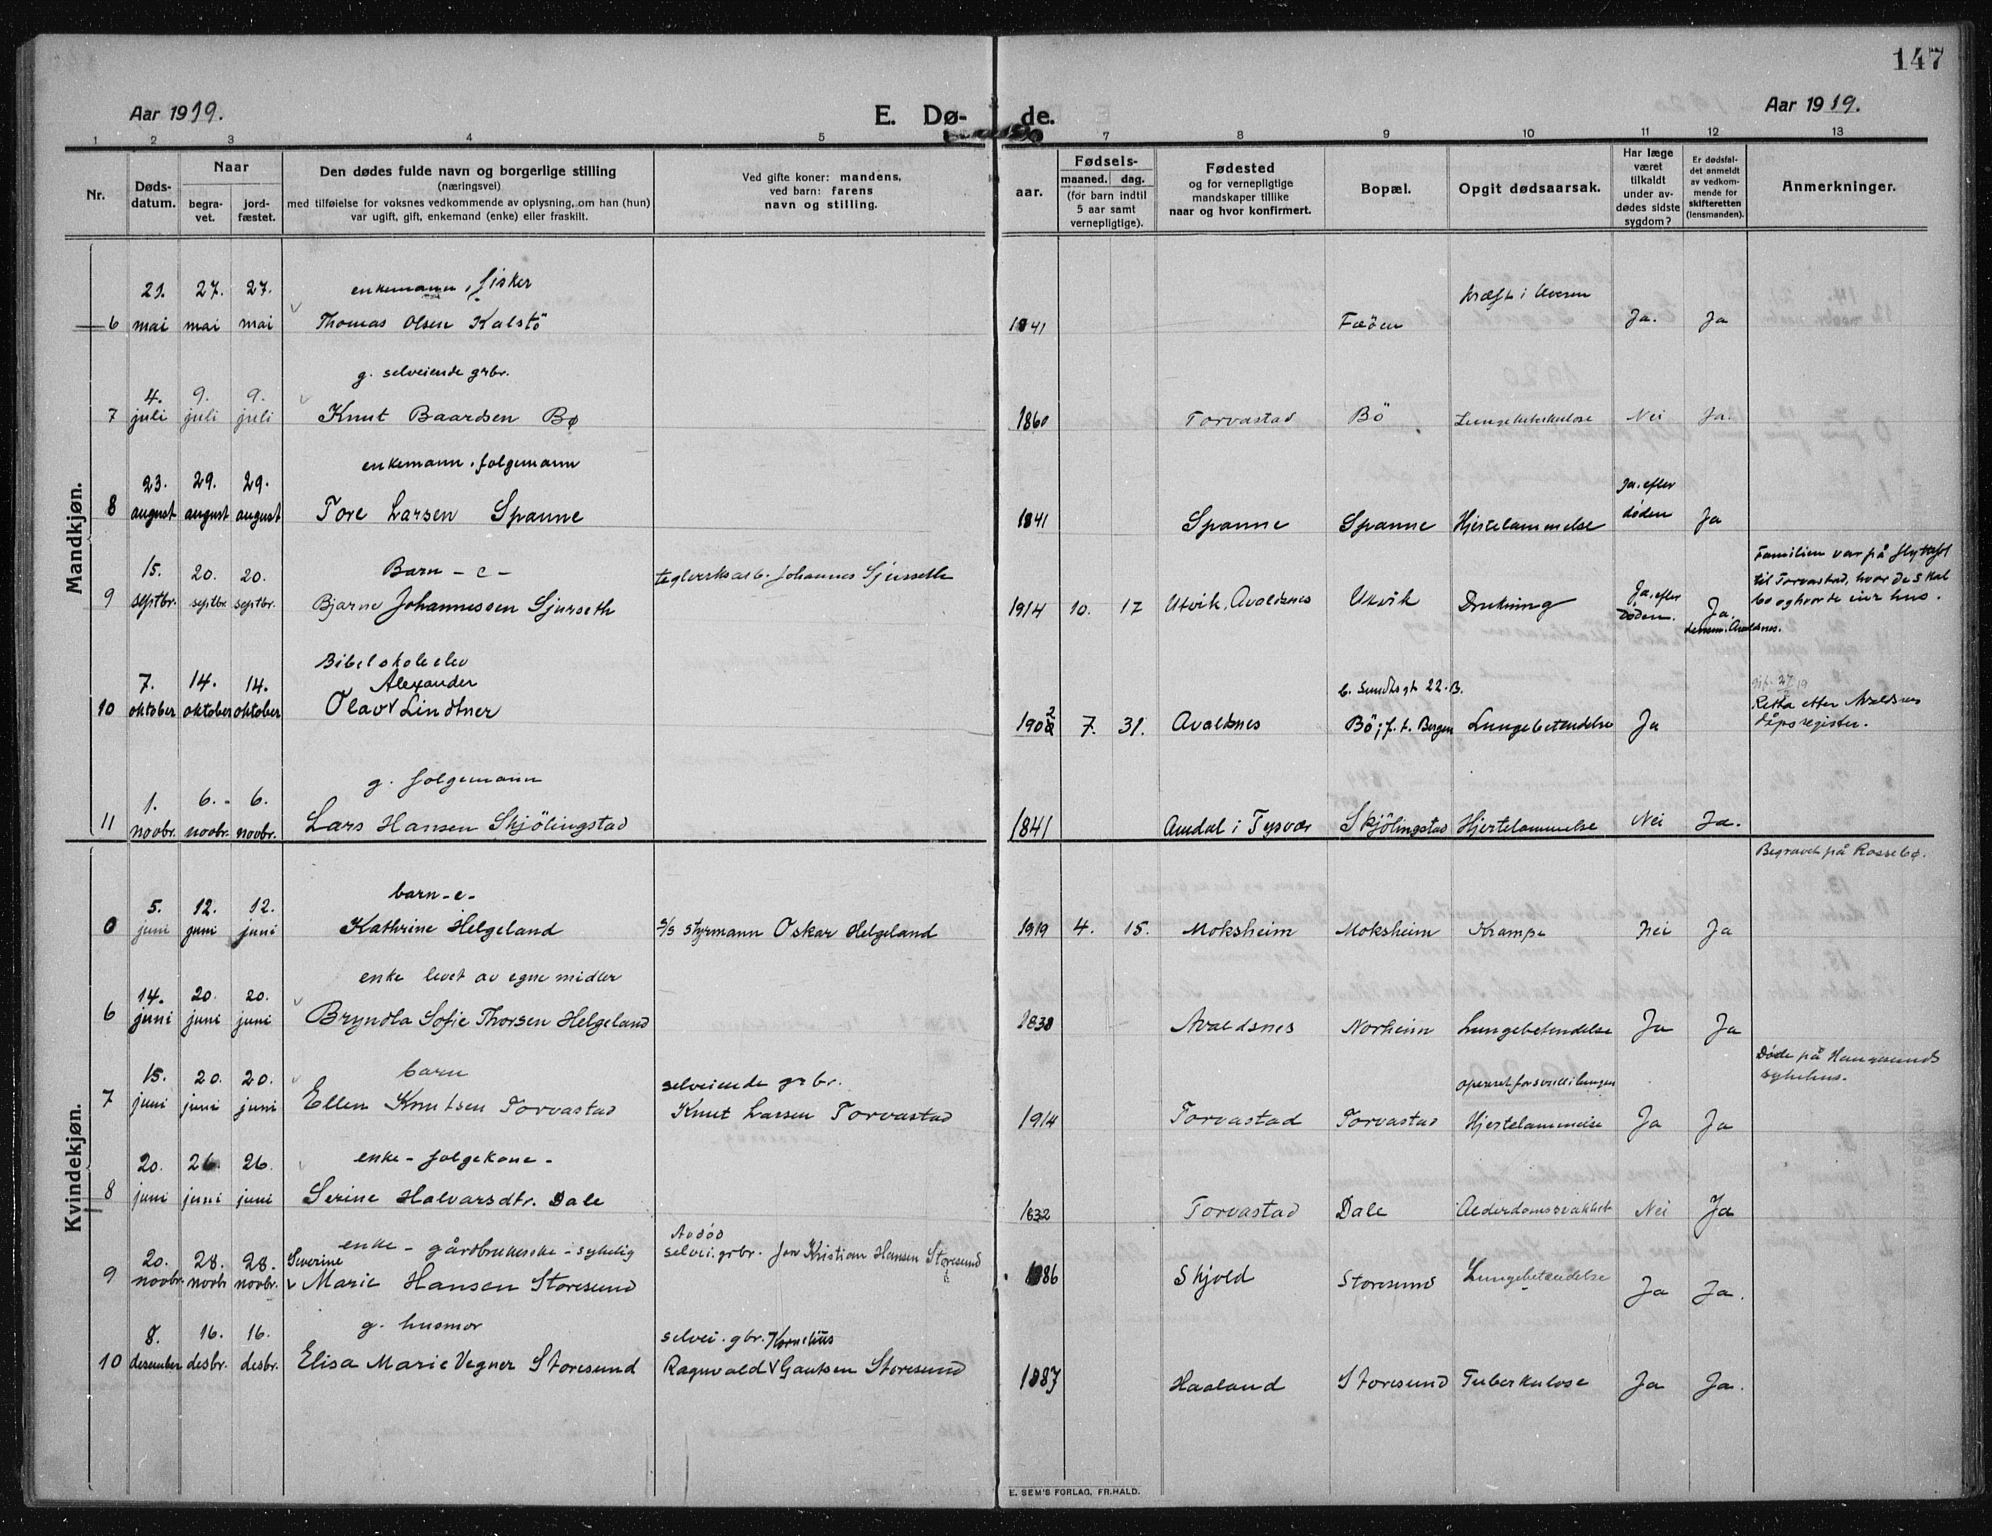 147
Aar 1919.
E. Dø-
de.
Aar 1919.
1 2 3 4 5 7 8 9 10 11 12 13
Nr.
Døds-
datum.
Naar
begra-
vet.
jord-
fæstet.
Den dødes fulde navn og borgerlige stilling
(næringsvei)
med tilføielse for voksnes vedkommende av oplysning, om han (hun)
var ugift, gift, enkemand (enke) eller fraskilt.
Ved gifte koner: mandens,
ved barn: farens
navn og stilling.
aar.
Fødsels-
maaned. dag.
(for barn indtil
5 aar samt
vernepligtige).
Fødested
og for vernepligtige
mandskaper tillike
naar og hvor konfirmert.
Bopæl.
Opgit dødsaarsak.
Har læge
været
tilkaldt
under av-
dødes sidste
sygdom?
Er dødsfal-
det anmeldt
av vedkom-
mende for
skifteretten
(lensmanden).
Anmerkninger.
Mandkjøn.
21. 27. 27. enkemann, fisker kræft i
6 mai mai mai Thomas Olsen Kalstö 1841 Fæöen Ja. Ja
4. 9. 9. g. selveiende grbr.
7 juli juli juli Knut Baardsen Bø 1860 Torvastad Bö Lungetuberkulose Nei Ja.
23. 29. 29. enkemann, folgemann Ja. efter
8 august august august Tore Larsen Spanne 1841 Spanne Spanne Hjertelammelse døden Ja
15. 20. 20. Barn - e - teglverksarb. Johannes Sjurseth Familien var på flyttefot
til Torvastad, hvor de skal
9 septbr. septbr. septbr. Bjarne Johannessen Sjurseth 1914 10. 17 Utvik, Avaldsnes Utvik Drukning Ja. efter døden. Ja. bo og hvor de eier hus.
lensm. Avaldsnes.
Bibelskoleelev
7. 14. 14. Alexander C. Sundtsgt 22. B.
10 oktober oktober oktober Olav Lindtner 1902 7. 31. Avaldsnes Bö; f. t. Bergen Lungebetendelse Ja Retta etter Avaldsnes
dåpsregister.
1. 6. 6. g. folgemann
11 novbr. novbr. novbr. Lars Hansen Skjölingstad 1841 Amdal i Tysvær Skjölingstad Hjertelammelse Nei Ja.
Kvindekjøn.
Begravet på Rossebø.
5. 12. 12. barn - e -
0 juni juni juni Kathrine Helgeland Styrmann Oskar Helgeland 1919 4. 15. Moksheim Moksheim Krampe Nei Ja
14. 20. 20. enke levet av egne midler
6 juni juni juni Bryndla Sofie Thorsen Helgeland 1838 Avaldsnes Norheim Lungebetendelse Ja Ja
15. 20. 20. barn selveiende grbr. operert for svull i lungen Døde på Haugesunds
sykehus.
7 juni juni juni Ellen Knutsen Torvastad Knut Larsen Torvastad 1914 Torvastad Torvastad Hjertelammelse Ja Ja
20. 26. 26. enke - folgekone -
8 juni juni juni Serine Halvarsdtr. Dale 1832 Torvastad Dale Alderdomssvakhet Nei Ja
Avdød
20. 28. 28. Severine enke - gårdbrukerske - sykelig selvei. grbr. Kristian Hansen Storesund
9 novbr. novbr. novbr. Marie Hansen Storesund 1886 Skjold Storesund Lungebetændelse Ja Ja.
8. 16. 16. g. husmor selvei. gbr. Kornelius
10 desember desbr. desbr. Elisa Marie Vegner Storesund Ragnvald Gautsen Storesund 1887 Haaland Storesund Tuberkulose Ja Ja.
E. SEM'S FORLAG, FR.HALD.